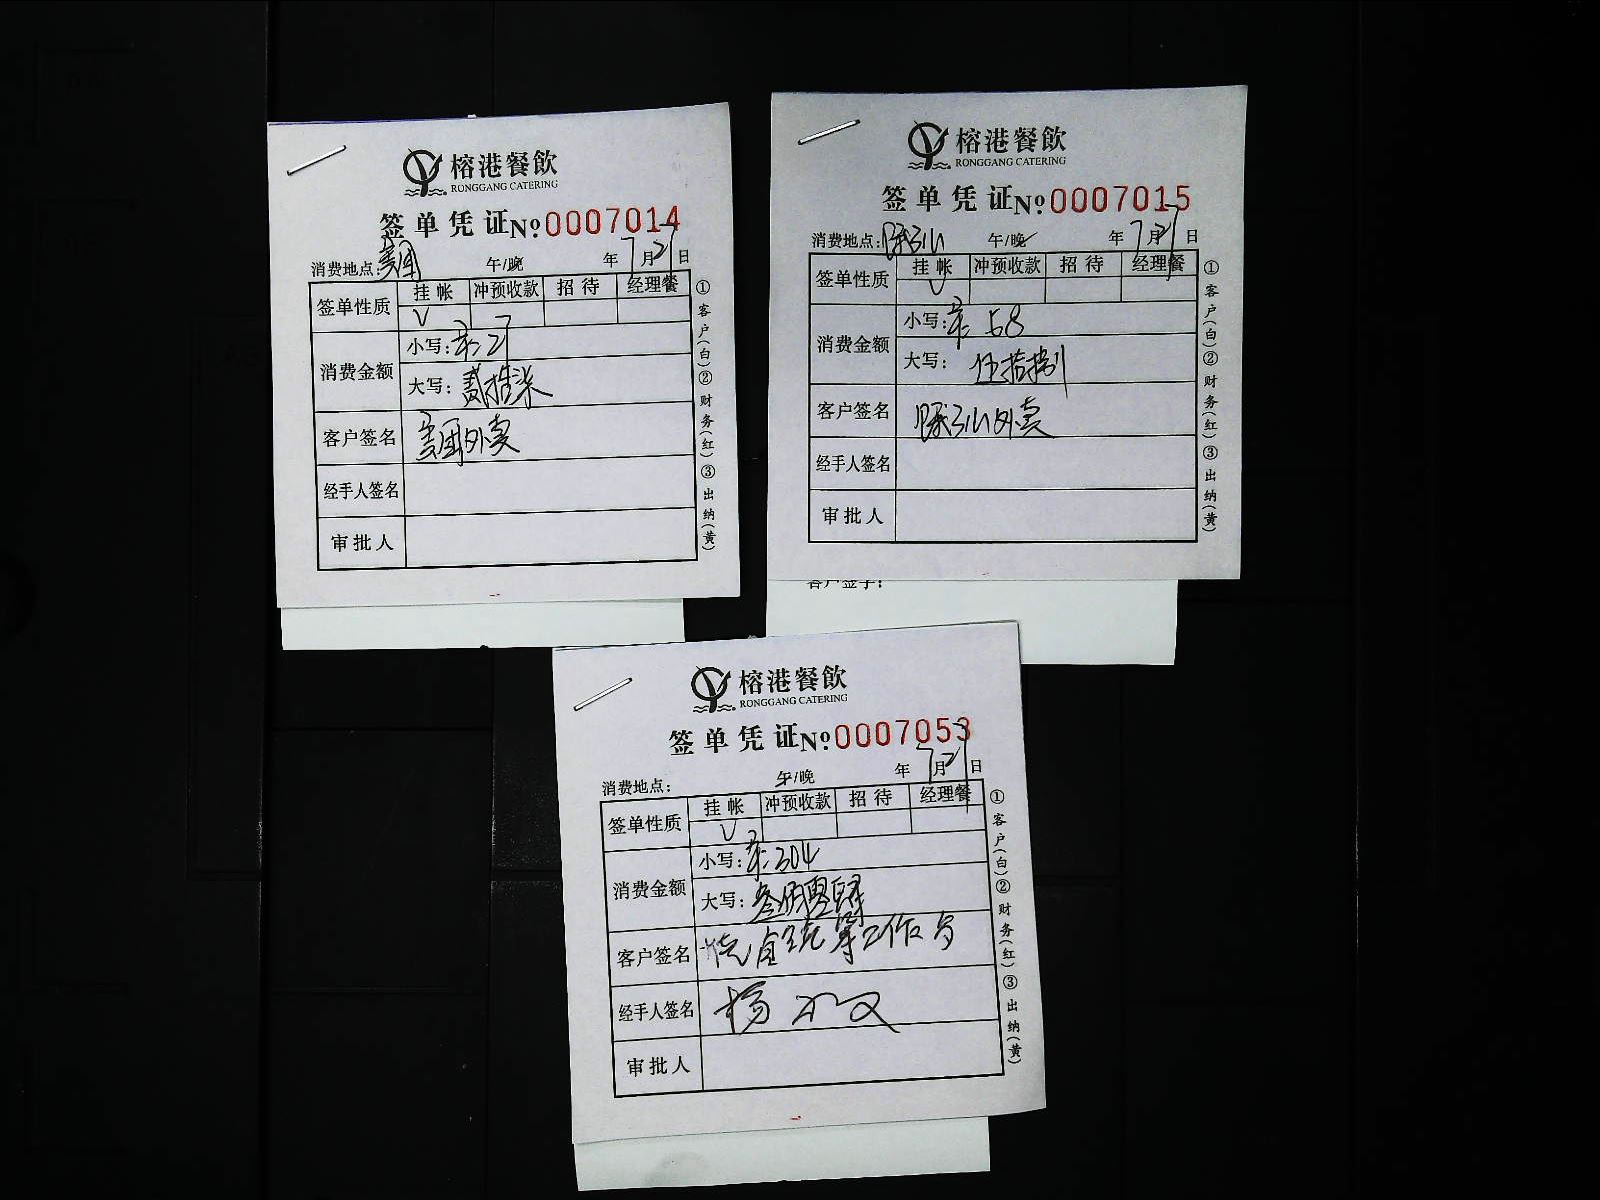 榕港餐飲
RONGGANG CATERING
签单凭证 № 0007014
消费地点:美团 午/晚 年 7月21日
签单性质 挂帐 冲预收款 招待 经理餐
V
消费金额 小写: 27
大写: 贰拾柒
客户签名 美团外卖
经手人签名
审批人
①客户(白)②财务(红)③出纳(黄)
榕港餐飲
RONGGANG CATERING
签单凭证 № 0007015
消费地点: 午/晚 年 7月21日
签单性质 挂帐 冲预收款 招待 经理餐
V
消费金额 小写: 58
大写: 伍拾捌
客户签名 外卖
经手人签名
审批人
①客户(白)②财务(红)③出纳(黄)
客户签字:
榕港餐飲
RONGGANG CATERING
签单凭证 № 0007053
消费地点: 午/晚 年 7月21日
签单性质 挂帐 冲预收款 招待 经理餐
V
消费金额 小写: 304
大写: 叁佰零肆
客户签名 统筹工作
经手人签名 杨
审批人
①客户(白)②财务(红)③出纳(黄)